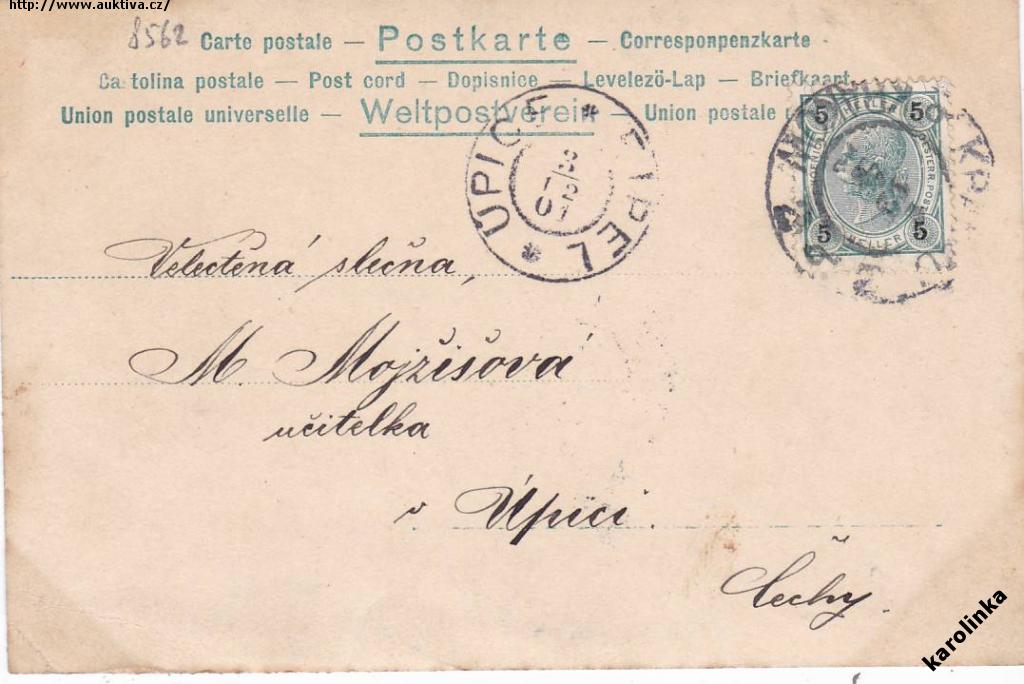 http://www.auktiva.cz/
8562
Carte postale — Postkarte — Corresponpenzkarte
Cartolina postale — Post cord — Dopisnice — Levelezö-Lap — Briefkaart
Union postale universelle — Weltpostverein — Union postale
5 HELLER 5
5 HELLER 5
ÚPICE * EIPEL *
3/2 01
Velectěná slečna,
M. Mojžišová
učitelka
v Úpici.
Čechy.
karolinka